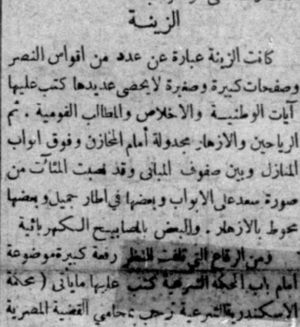 الزينة
كانت الزينة عبارة عن عدد من اقواس النصر
وصفحات كبيرة وصغيرة لا يحصى عديدها كتب عليها
آيات الوطنيـة والاخلاص والمطالب القومية . ثم
الرياحين والازهار مجدولة أمام المخازن وفوق ابواب
المنازل وبين صفوف المبانى وقد نصبت المئات من
صورة سعد على الابواب وبعضها في اطار جميل وبعضها
محوط بالازهار . والبعض بالمصابيح الكهربائية
ومن الرقاع التي تلفت النظر رقعة كبيرة موضوعة
أمام باب المحكمة الشرعية كتب عليها ما يأتى ( محكمة
الاسكندرية الشرعية ترحب بمحامي القضية المصرية